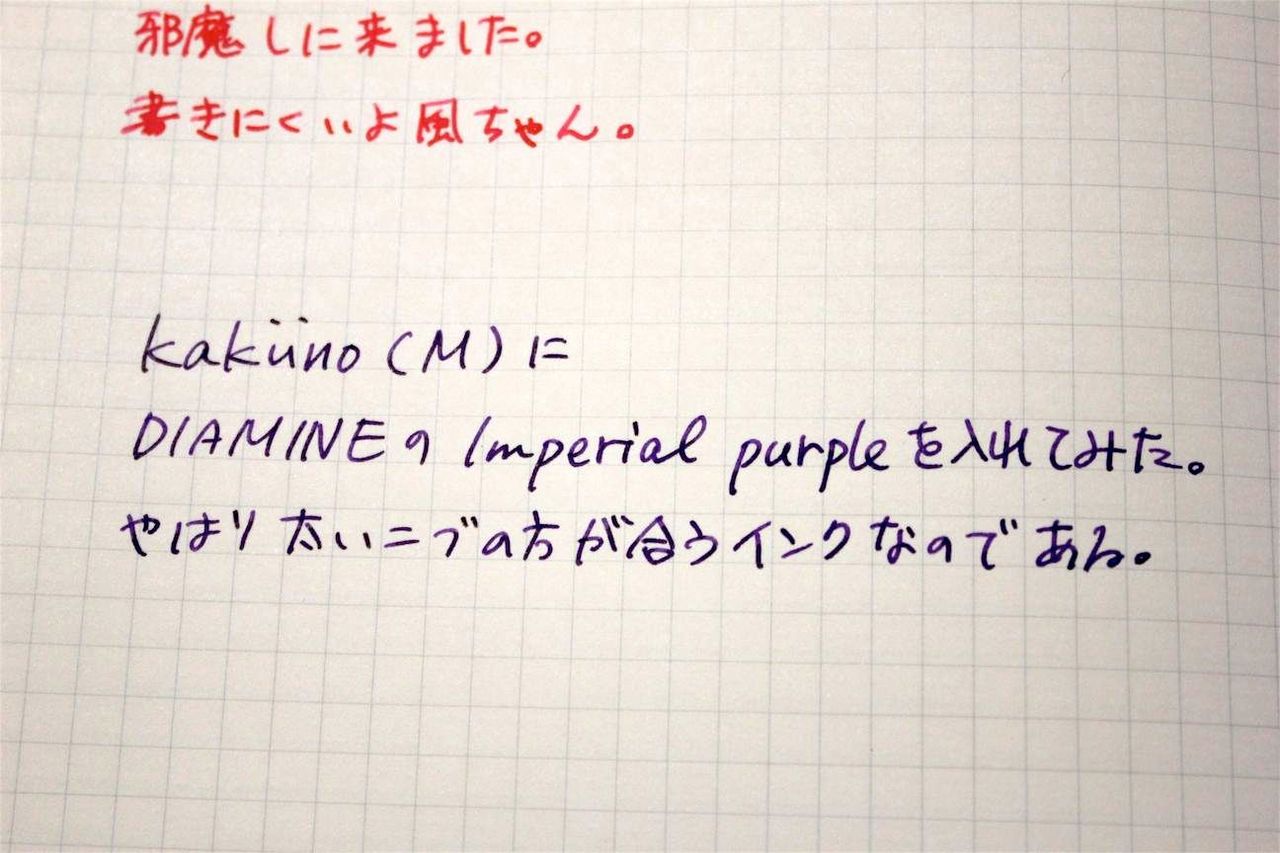 邪魔しに来ました。
書きにくいよ風ちゃん。
kaküno (M) に
DIAMINEの Imperial purpleを入れてみた。
やはり太いニブの方が合うインクなのである。